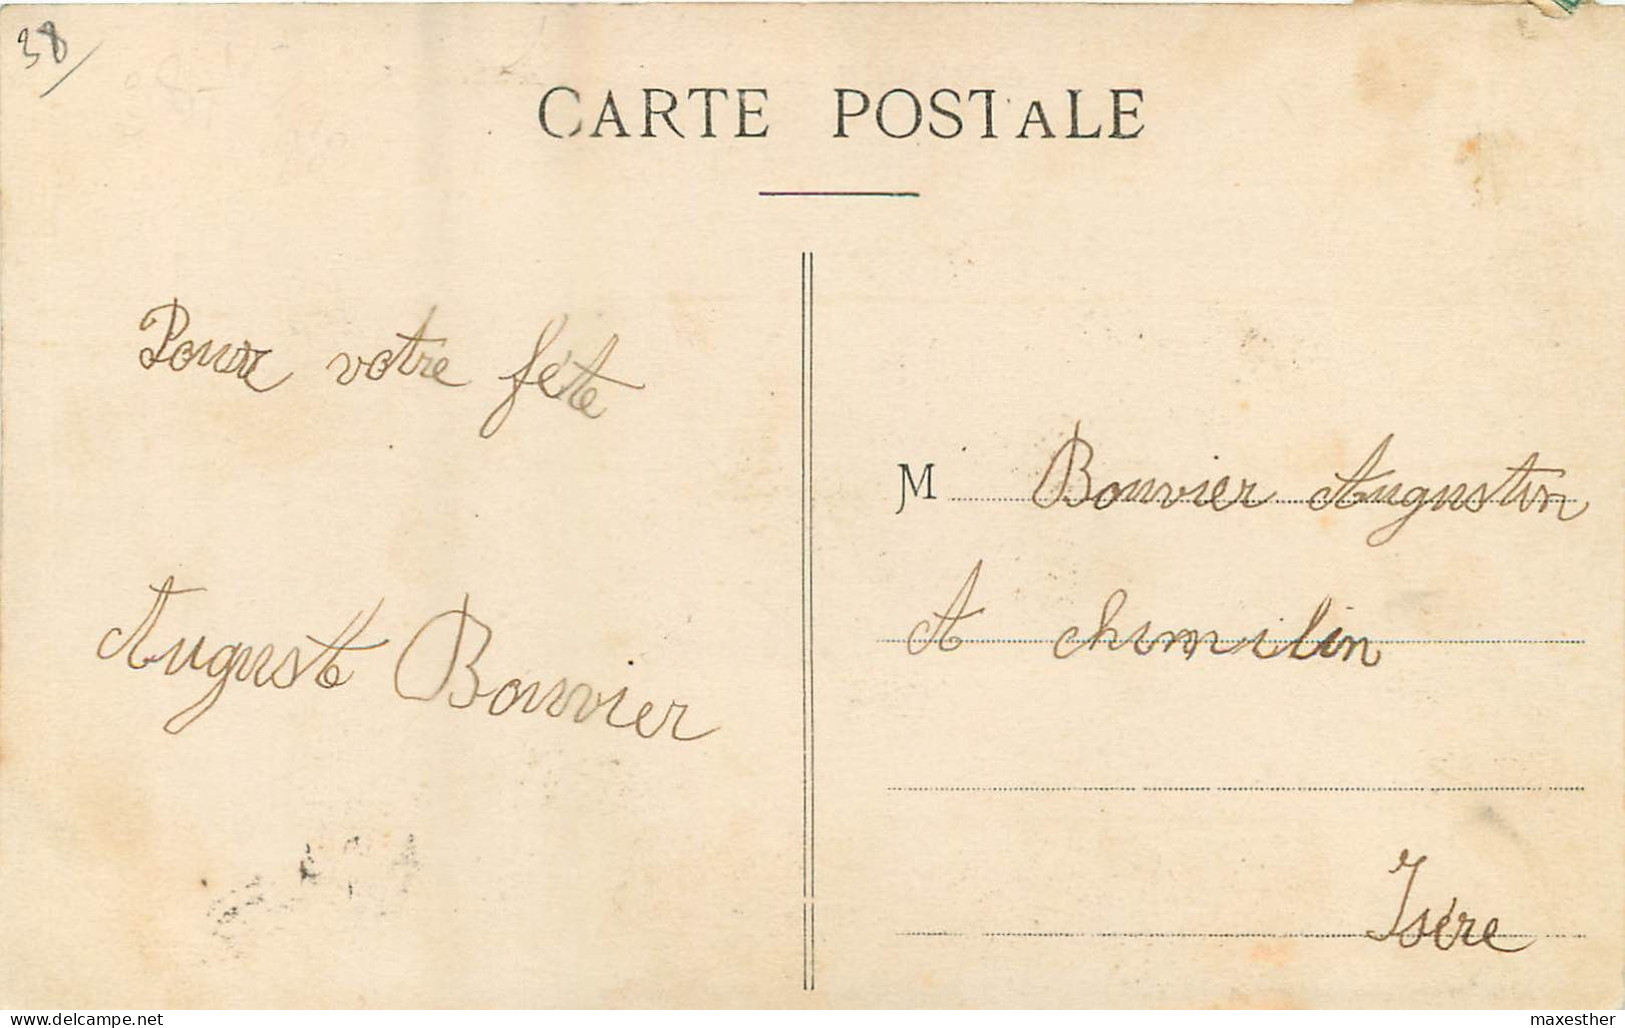 38
CARTE POSTALE
Pour votre fête
August Bouvier
M Bouvier Augustin
A chimilin
Isère
www.delcampe.net
maxesther